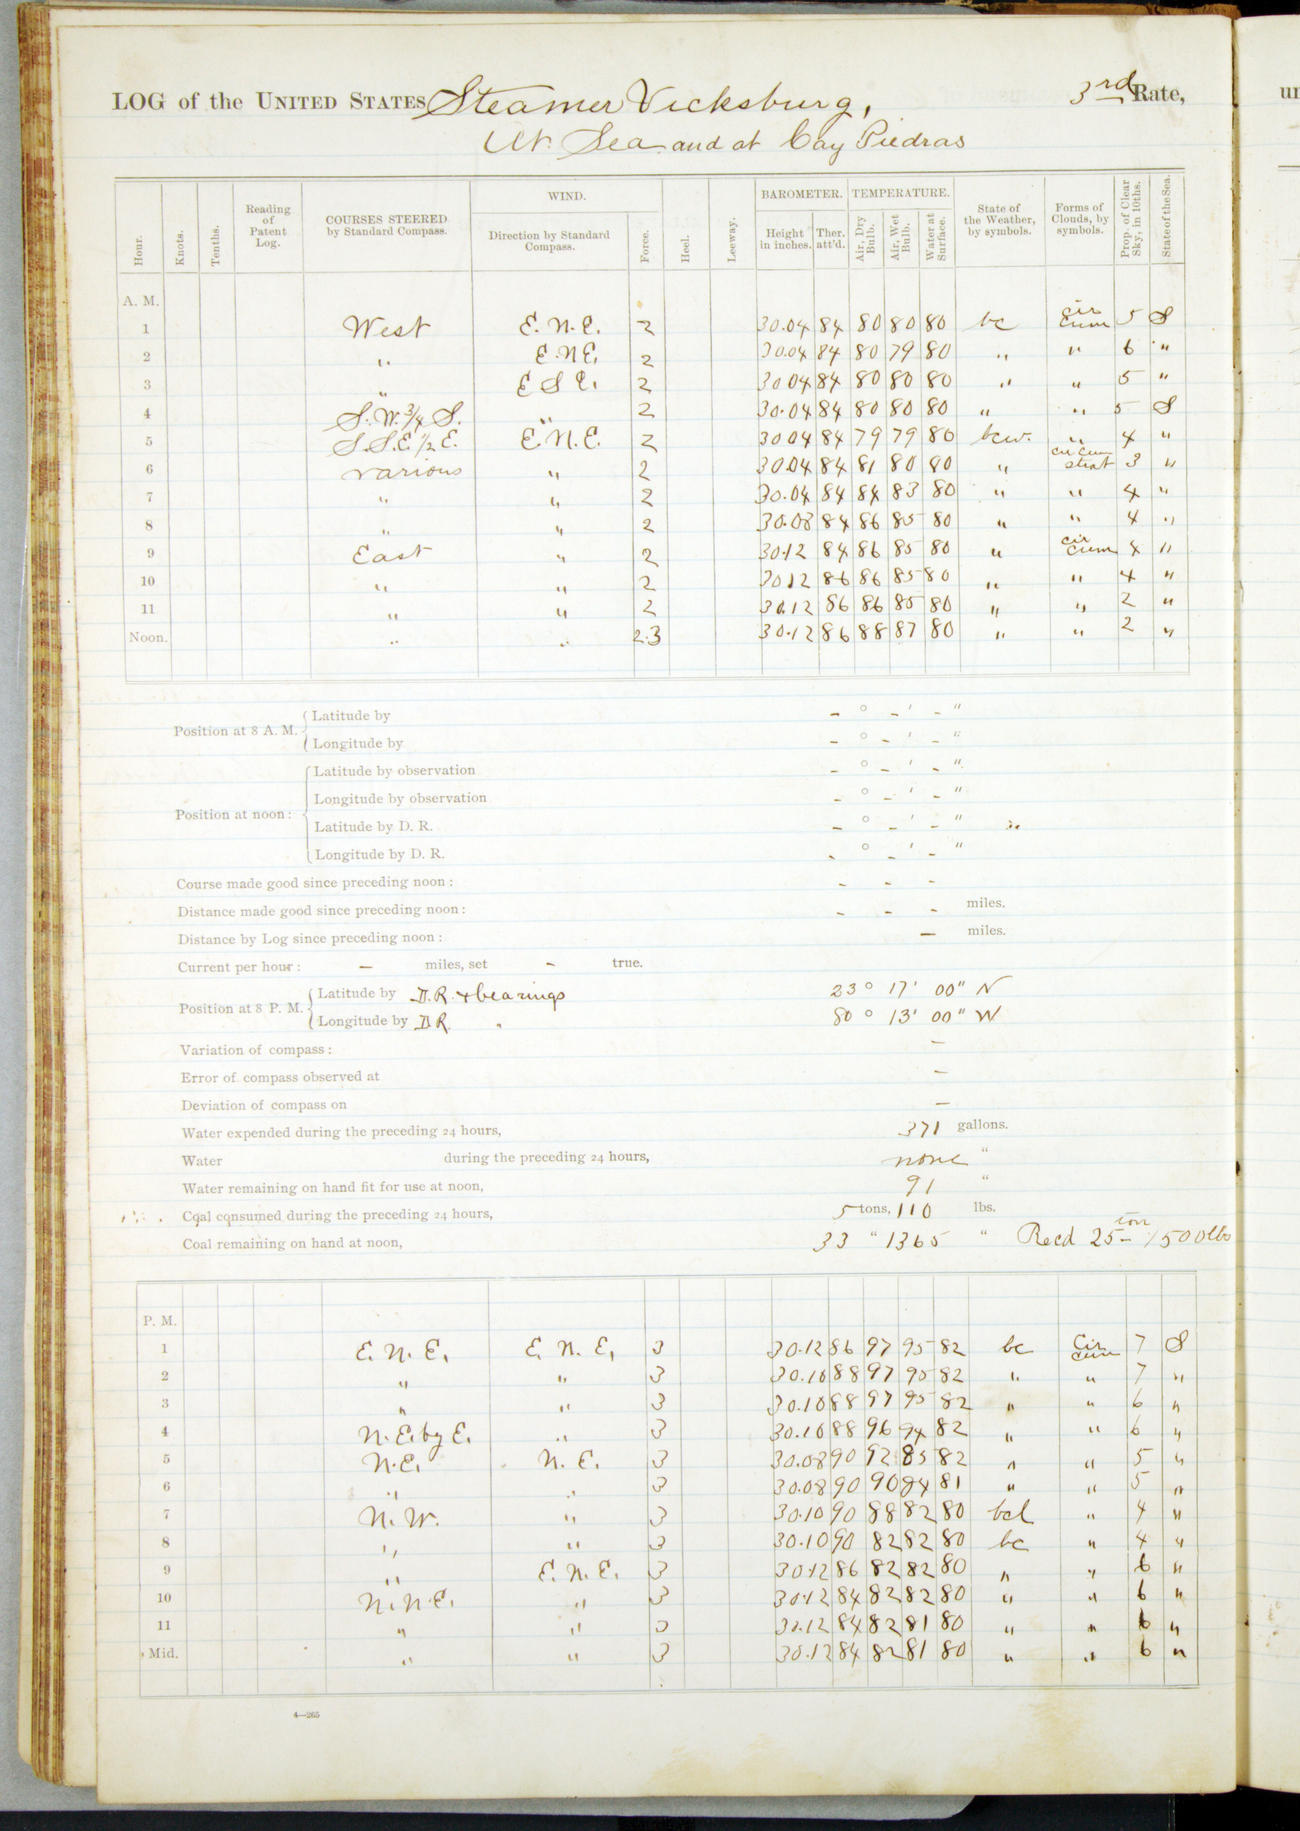 LOG of the UNITED STATES Steamer Vicksburg, 3rd Rate,
At Sea and at Cay Piedras
Hour. Knots. Tenths. Reading of Patent Log. COURSES STEERED by Standard Compass. WIND. Direction by Standard Compass. Force. Heel. Leeway. BAROMETER. Height in inches. Ther. att'd. TEMPERATURE. Air, Dry Bulb. Air, Wet Bulb. Water at Surface. State of the Weather, by symbols. Forms of Clouds, by symbols. Prop. of Clear Sky, in 10ths. State of the Sea.
A. M.
1 West E. N. E. 2 30.04 84 80 80 80 bc cir cum 5 S
2 " E.N.E. 2 30.04 84 80 79 80 " " 6 "
3 " E S E. 2 30.04 84 80 80 80 " " 5 "
4 S. W. 3/4 S. " 2 30.04 84 80 80 80 " " 5 S
5 S.S.E. 1/2 E. E. N. E. 2 30.04 84 79 79 80 bcw. " 4 "
6 various " 2 30.04 84 81 80 80 " cir cum strat 3 "
7 " " 2 30.04 84 84 83 80 " " 4 "
8 " " 2 30.08 84 86 85 80 " " 4 "
9 East " 2 30.12 84 86 85 80 " cir cum 4 "
10 " " 2 30.12 86 86 85 80 " " 4 "
11 " " 2 30.12 86 86 85 80 " " 2 "
Noon. " " 2.3 30.12 86 88 87 80 " " 2 "
Position at 8 A. M. Latitude by - ° - ' - "
Longitude by - ° - ' - "
Position at noon: Latitude by observation - ° - ' - "
Longitude by observation - ° - ' - "
Latitude by D. R. - ° - ' - "
Longitude by D. R. - ° - ' - "
Course made good since preceding noon: - - -
Distance made good since preceding noon: - - - miles.
Distance by Log since preceding noon: - miles.
Current per hour: - miles, set - true.
Position at 8 P. M. Latitude by D.R. + bearings 23° 17' 00" N
Longitude by DR. " 80° 13' 00" W
Variation of compass: -
Error of compass observed at -
Deviation of compass on -
Water expended during the preceding 24 hours, 371 gallons.
Water during the preceding 24 hours, none "
Water remaining on hand fit for use at noon, 91 "
Coal consumed during the preceding 24 hours, 5 tons, 110 lbs.
Coal remaining on hand at noon, 33 " 1365 " Recd 25 ton 1500 lbs
P. M.
1 E. N. E. E. N. E. 3 30.12 86 97 95 82 bc Cir cum 7 S
2 " " 3 30.10 88 97 95 82 " " 7 "
3 " " 3 30.10 88 97 95 82 " " 6 "
4 N. E. by E. " 3 30.10 88 96 94 82 " " 6 "
5 N.E. N. E. 3 30.08 90 92 85 82 " " 5 "
6 " " 3 30.08 90 90 84 81 " " 5 "
7 N. W. " 3 30.10 90 88 82 80 bcl " 4 "
8 " " 3 30.10 90 82 82 80 bc " 4 "
9 " E. N. E. 3 30.12 86 82 82 80 " " 6 "
10 N. N. E. " 3 30.12 84 82 82 80 " " 6 "
11 " " 3 30.12 84 82 81 80 " " 6 "
Mid. " " 3 30.12 84 82 81 80 " " 6 "
4—265